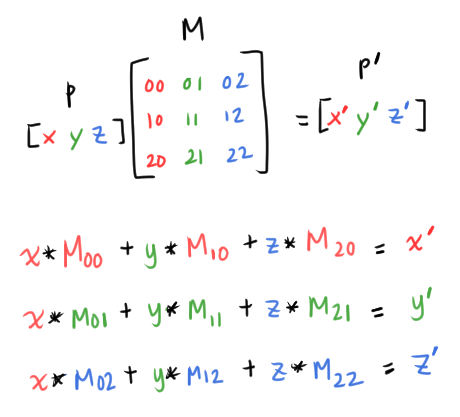 M
P
P'
[x y z] [00 01 02
10 11 12
20 21 22] = [x' y' z']
x*M₀₀ + y*M₁₀ + z*M₂₀ = x'
x*M₀₁ + y*M₁₁ + z*M₂₁ = y'
x*M₀₂ + y*M₁₂ + z*M₂₂ = z'